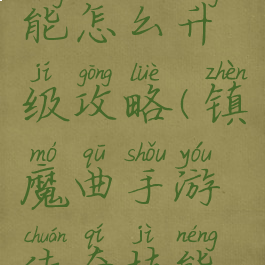 能怎么升
jí gōng lüè zhèn
级攻略(镇
mó qū shǒu yóu
魔曲手游
chuán qí jì néng
传奇技能